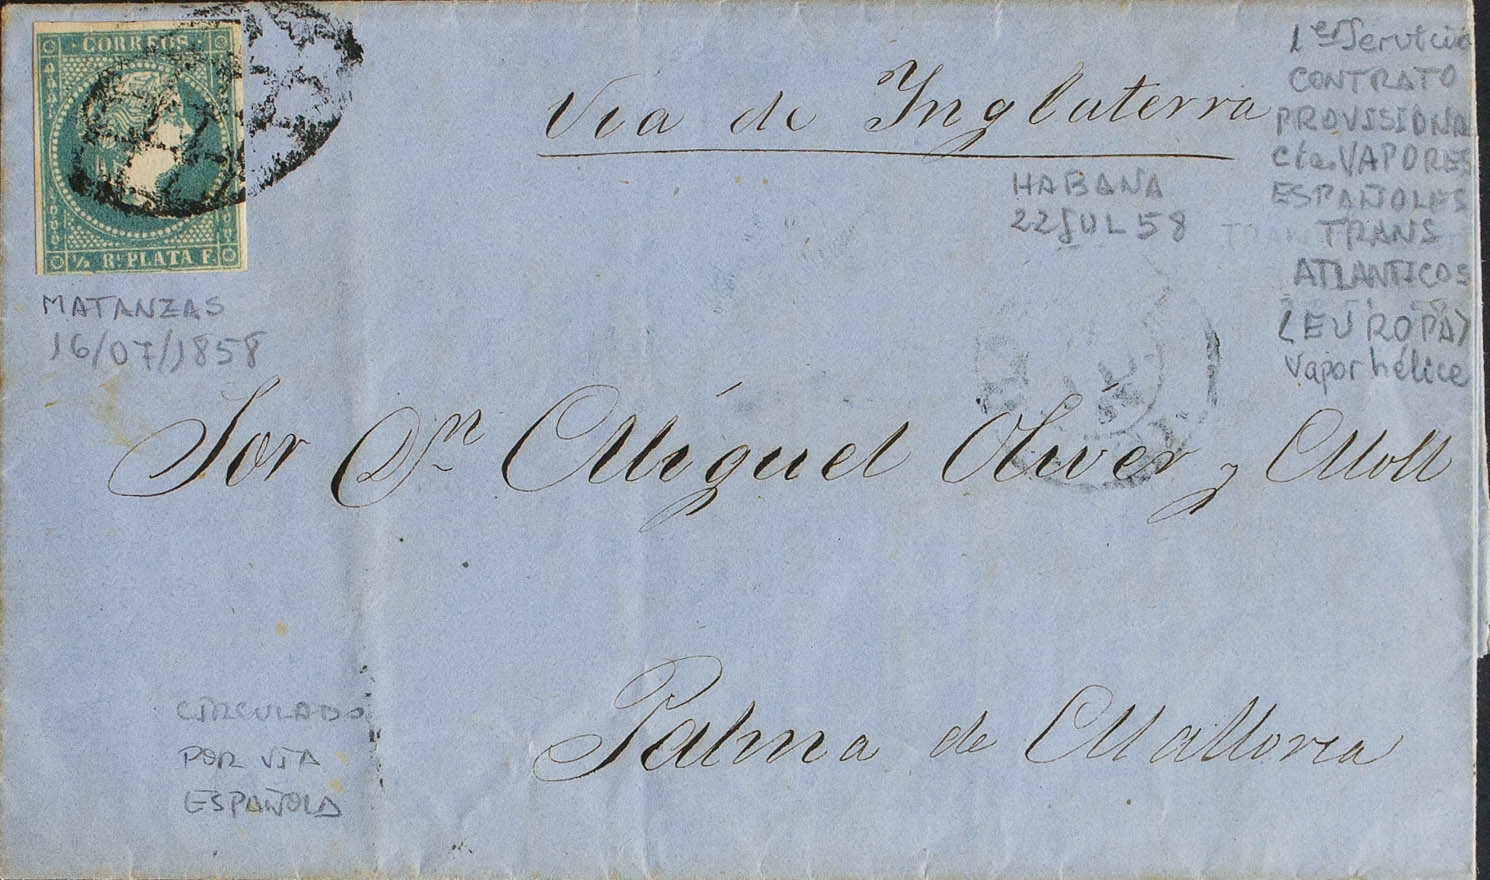 CORREOS
½ Rl. PLATA F.
Via de Inglaterra
1er Servicio
CONTRATO
PROVISIONAL
Cta. VAPORES
ESPAÑOLES
TRANS
ATLANTICOS
(EUROPA)
vapor hélice
HABANA
22 JUL 58
MATANZAS
16/07/1858
Sor Dn Miguel Oliver y Moll
Palma de Mallorca
CIRCULADO
POR VIA
ESPAÑOLA